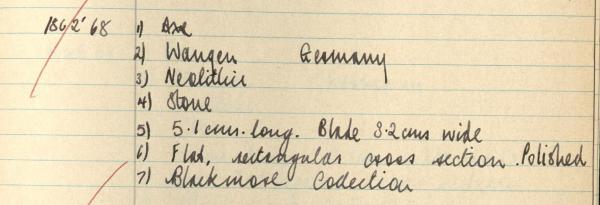 1862'68 1) Axe
2) Wangen Germany
3) Neolithic
4) Stone
5) 5.1 cms. long. Blade 3.2 cms wide
6) Flat, rectangular cross section. Polished
7) Blackmore Collection